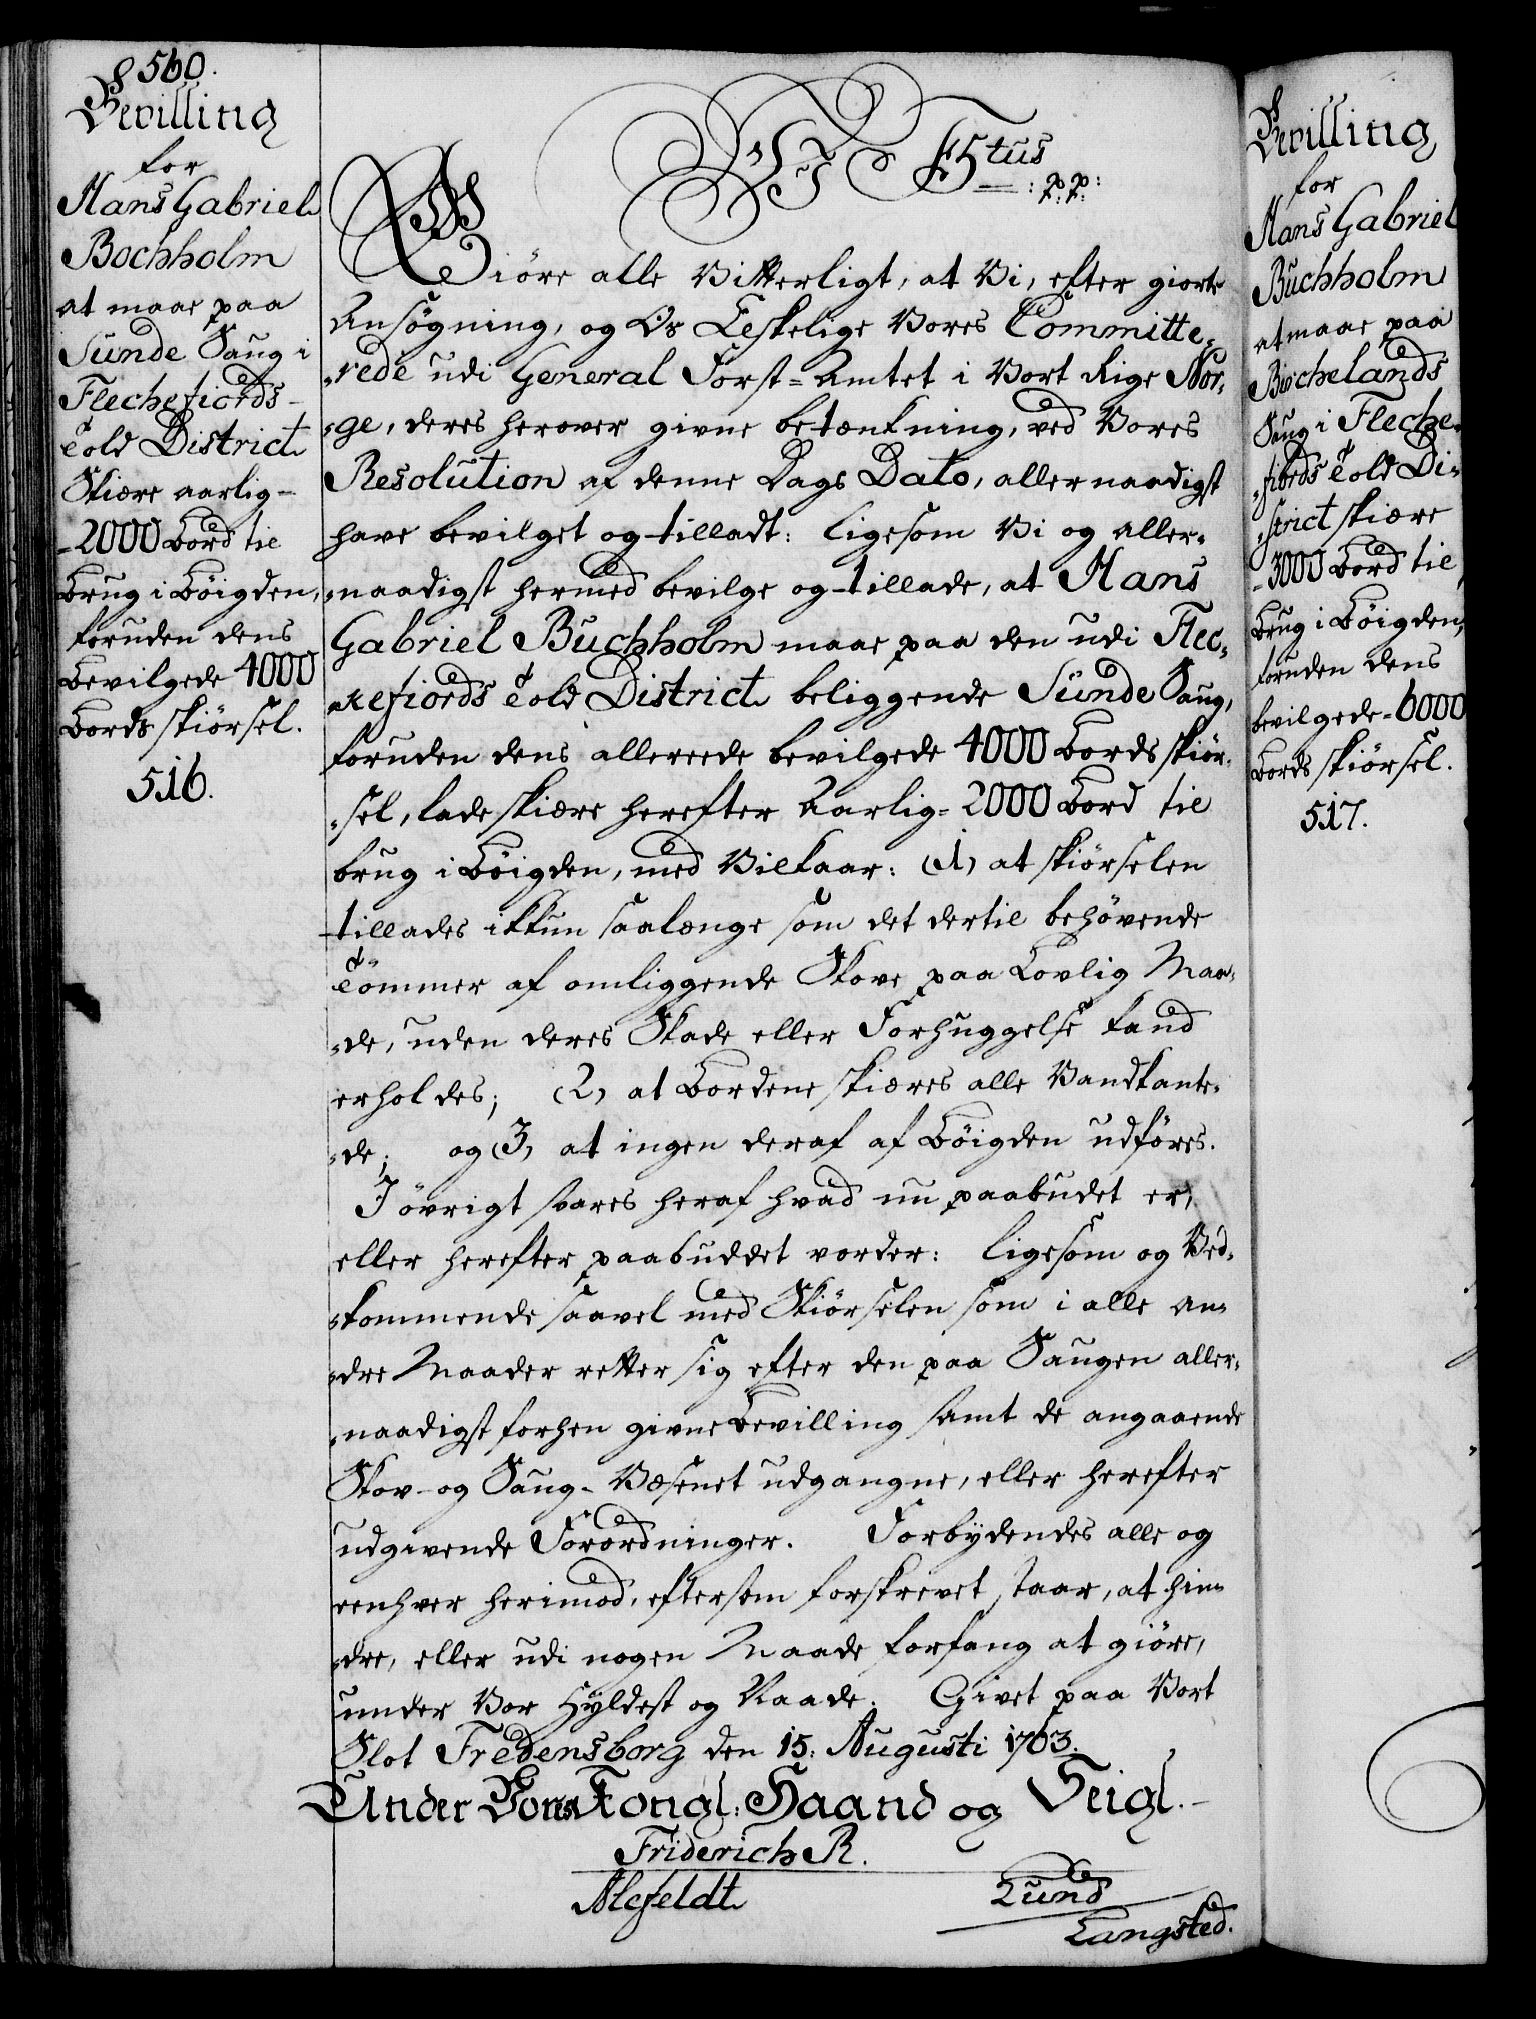 560.
Bevilling
for
Hans Gabriel
Bochholm
at maae paa
Sunde Saug i
Flechefiords
Told District
Skiære aarlig
2000 Bord til
Brug i Böigden,
foruden dens
bevilgede 4000
Bords skiörsel.
516.
Vi F 5tus
: p: p:
Giöre alle Vitterligt, at Vi, efter giorte
Ansögning, og Os Leskelige Vores Committe-
-rede udi General Forst-Amtet i Vort Rige Nor-
-ge, deres herover givne betænkning, ved Vores
Resolution af denne Dags Dato, allernaadigst
have bevilget og tilladt: ligesom Vi og aller-
-naadigst hermed bevilge og tillade, at Hans
Gabriel Buchholm maae paa den udi Flec-
-kefiords Told District beliggende Sunde Saug,
foruden dens allereede bevilgede 4000 Bords skiör-
-sel, lade skiære herefter Aarlig 2000 Bord til
brug i Böigden, med Vilkaar: (1) at skiörselen
tillades ikkun saalænge som det dertil behövende
Tömmer af omliggende Skove paa Lovlig Maa-
-de, uden deres Skade eller Forhuggelse kand
erholdes; (2) at Bordene skiæres alle Vandkante-
-de; og (3) at ingen deraf af Böigden udföres.
I övrigt svares heraf hvad nu paabudet er,
eller herefter paabuddet vorder: ligesom og Ved-
-kommende saavel med Skiörselen som i alle an-
-dre Maader retter sig efter den paa Saugen aller-
-naadigst forhen givne Bevilling samt de angaaende
Skov- og Saug-Væsenet udgangne, eller herefter
udgivende Forordninger. Forbydendes alle og
eenhver herimod, eftersom forskrevet staar, at hin-
-dre, eller udi nogen Maade forfang at giöre,
under Vor Hyldest og Naade. Givet paa Vort
Slot Fredensborg den 15. Augusti 1763.
Under Vores Kongl: Haand og Seigl.
Friderich R.
Alefeldt
Lund
Langsted.
Bevilling
for
Hans Gabriel
Buchholm
at maae paa
Birchelands
Saug i Flecke-
-fiords Told Di-
-strict skiære
3000 Bord til
Brug i Böigden,
foruden dens
bevilgede 6000
Bords skiörsel.
517.